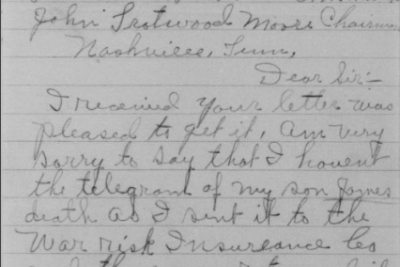 John Trotwood Moore Chairman
Nashville, Tenn,
Dear Sir:-
I received your letter was
pleased to get it, am very
sorry to say that I havent
the telegram of my son Jones
death as I sent it to the
War risk Insureance Co